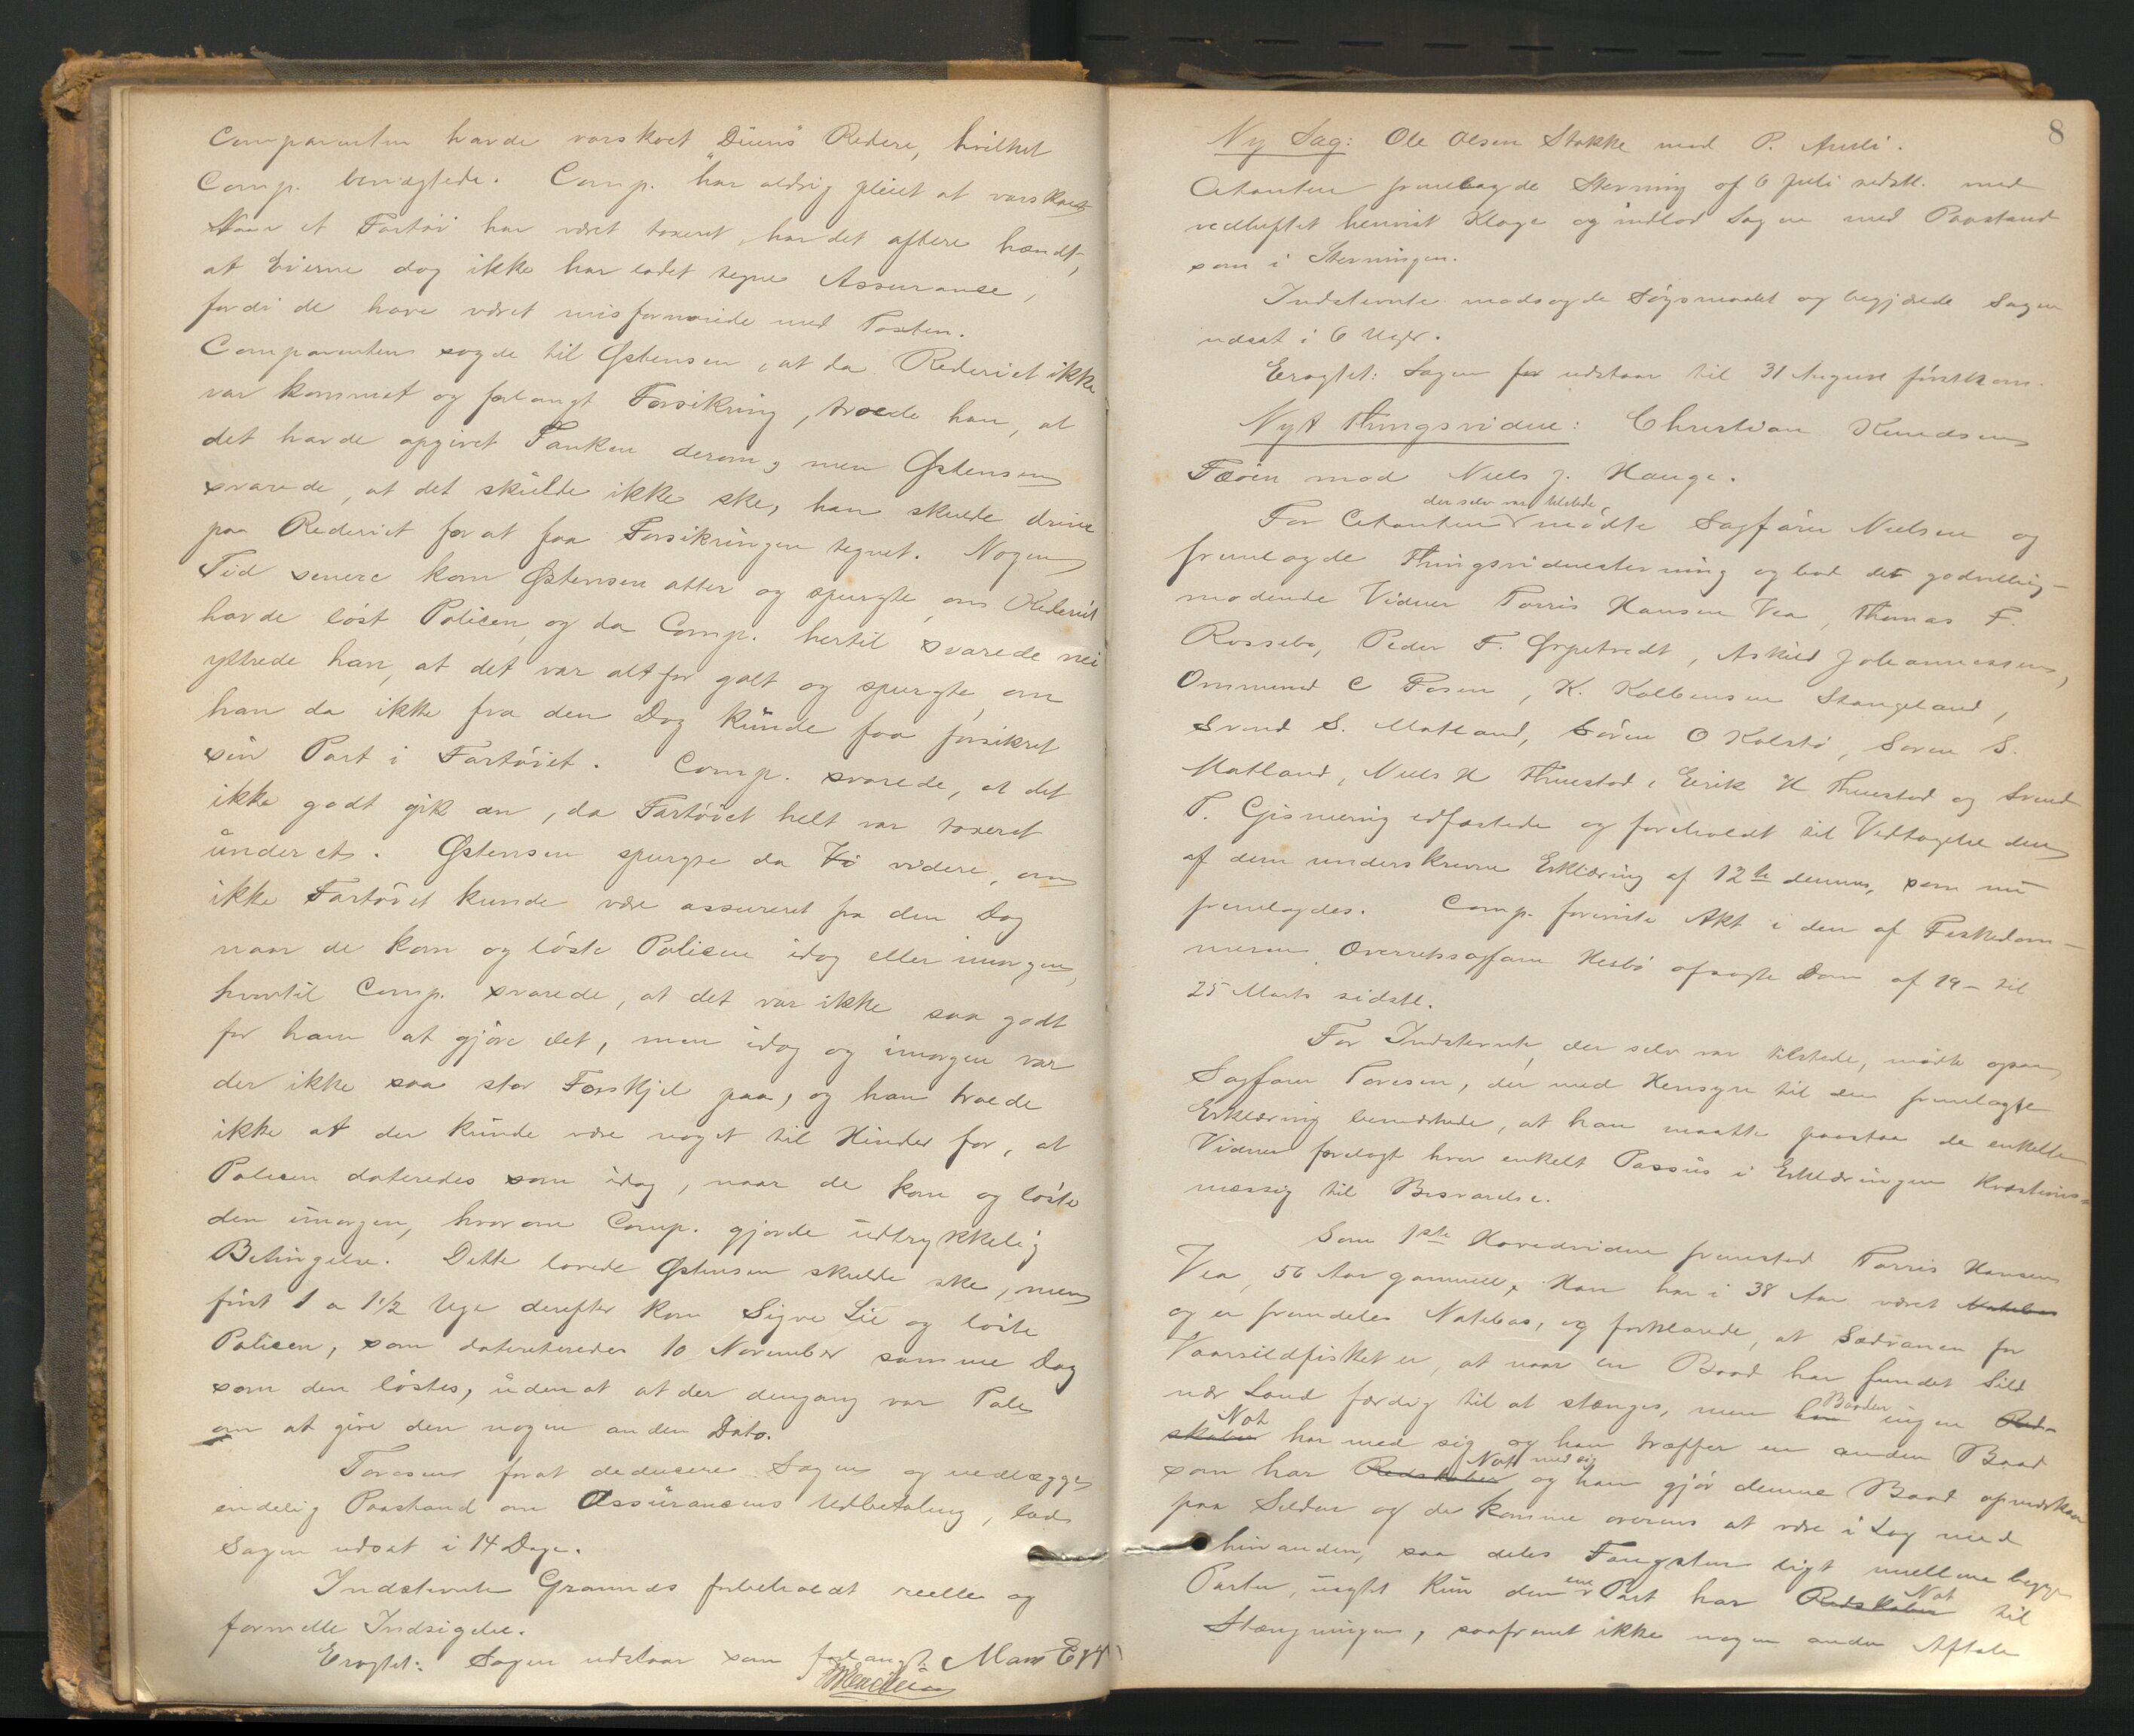 Comparenten havde varskoet "Duens" Redere, hvilket
Comp. benægtede. Comp. har aldrig pleiet at varskoet
Naar et Fartøi har været taxeret, har det oftere hændt,
at Eierne dog ikke har ladet tegne Assurance,
fordi de have været misfornøiede med Taxten.
Comparenten sagde til Østensen, at da Rederiet ikke
var kommet og forlangt Forsikring, troede han, at
det havde opgivet Tanken derom, men Østensen
svarede, at det skulde ikke ske, han skulde drive
paa Rederiet for at faa Forsikringen tegnet. Nogen
Tid senere kom Østensen atter og spurgte, om Rederiet
havde løst Policen, og da Comp. hertil svarede nei
yttrede han, at det var altfor galt og spurgte, om
han da ikke fra den Dag kunde faa forsikret
sin Part i Fartøiet. Comp. svarede, at det
ikke godt gik an, da Fartøiet helt var taxeret
under et. Østensen spurgte da videre, om
ikke Fartøiet kunde være assureret fra den Dag
naar de kom og løste Policen idag eller imorgen,
hvortil Comp. svarede, at det var ikke saa godt
for ham at gjøre det, men idag og imorgen var
der ikke saa stor Forskjel paa, og han troede
ikke at der kunde være noget til Hinder for, at
Policen dateredes som idag, naar de kom og løste
den imorgen, hvorom Comp. gjorde udtrykkelig
Betingelse. Dette lovede Østensen skulde ske, men
først 1 a 1 1/2 Uge derefter kom Sigve Lie og løste
Policen, som 10 November samme Dag
som den løstes, uden at at der dengang var Tale
om at give den nogen anden Dato.
Toresen forat deducere Sagen og nedlægge
endelig Paastand om Assurancens Udbetaling, lod
Sagen udsat i 14 Dage.
Indstevnte forbeholdt reelle og
formelle Indsigelse.
Eragtet: Sagen udstaar som forlangt.
8
Ny Sag: Ole Olsen Stakke mod P.
Citanten fremlagde Stevning af 6 Juli sidstl. med
vedheftet henvist Klage og indlod Sagen med Paastand
som i Stevningen.
Indstevnte modsagde Søgsmaalet og begjærede Sagen
udsat i 6 Uger.
Eragtet: Sagen for udstaar til 31 August førstkom.
Nyt Thingsvidne: Christian Knudsen
Fæøen mod Niels J. Hauge.
der selv var tilstede
For Citanten mødte Sagfører Nielsen og
fremlagde Thingsvidnestevning og bad de godvillig-
mødende Vidner Torris Hansen Vea, Thomas F.
Rossebø, Peder F. Ørpetvedt, Askild Johannessen,
Ommund C Fosen, K. Kolbensen Stangeland,
Svend S. Matland, Søren O Kolstø, Søren S.
Matland, Niels H Thuestad, Eirik H Thuestad og Svend
T. Gismervig edfæstede og foreholdt til Vedtagelse den
af dem underskrevne Erklæring af 12te dennes, som nu
fremlagdes. Comp. foreviste Akt i den af Feskedom-
meren Overretssagfører Hesbø afsagte Dom af 19 - til
25 Marts sidstl.
For Indstevnte, der selv var tilstede, mødte ogsaa
Sagfører Toresen, der med Hensyn til den fremlagte
Erklæring bemærkede, at han maatte paastaa de enkelte
Vidner forelagt hver enkelt Passus i Erklæringen Kvæstions-
mæssig til Besvarelse.
Som 1ste Hovedvidne fremstod Torris Hansen
Vea, 56 Aar gammel, Han har i 38 Aar været Notebas
og er fremdeles Notebas, og forklarede, at Sædvanen for
Vaarsildfisket er, at naar en Baad har fundet Sild
nær Land færdig til at stænges, men Baaden ingen Red-
skaber Not har med sig og han træffer en anden Baad
som har Redskaber Not med sig og han gjør denne Baad opmærksom
paa Silden og de komme overens at være i Lag med
hinanden, saa deles Fangsten ligt mellem begge
Parter, uagtet kun den ene Part har Redskaber Not til
Stængningen, saafremt ikke nogen anden Aftale